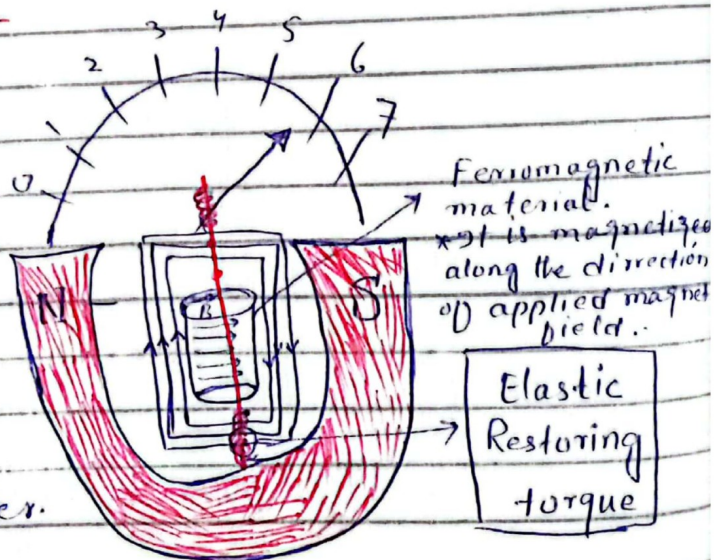 0
1
2
3
4
5
6
7
N
S
Ferromagnetic
material.
* It is magnetized
along the dirrection
of applied magnet
field..
Elastic
Restoring
torque
er.